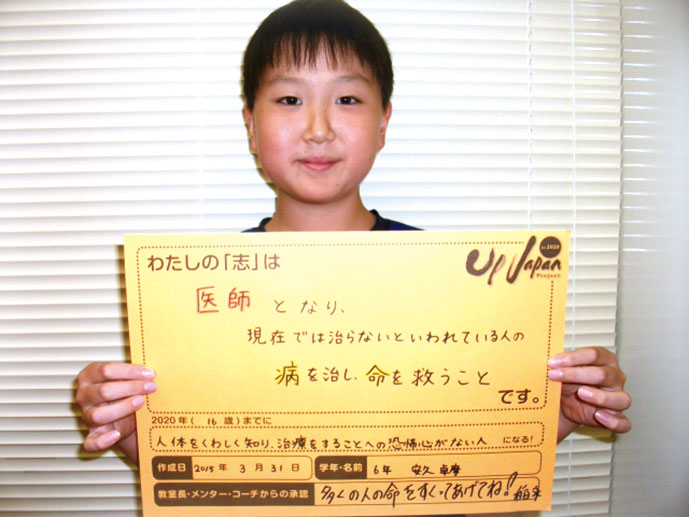 わたしの「志」は
to 2020
Up Japan
Project
医師となり、
現在では治らないといわれている人の
病を治し、命を救うこと
です。
2020年( 16 歳)までに
人体をくわしく知り、治療をすることへの恐怖心がない人 になる!
作成日 2015年 3月 31日 学年・名前 6年 安久 卓摩
教室長・メンター・コーチからの承認 多くの人の命をすくってあげてね!!